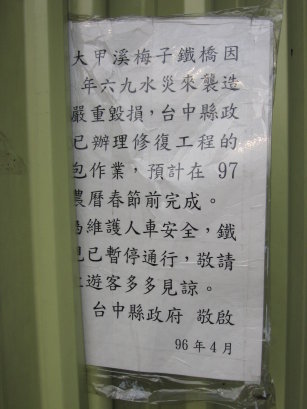 大甲溪梅子鐵橋因
年六九水災來襲造
嚴重毀損，台中縣政
已辦理修復工程的
包作業，預計在 97
農曆春節前完成。
為維護人車安全，鐵
已暫停通行，敬請
遊客多多見諒。
台中縣政府 敬啟
96 年 4 月